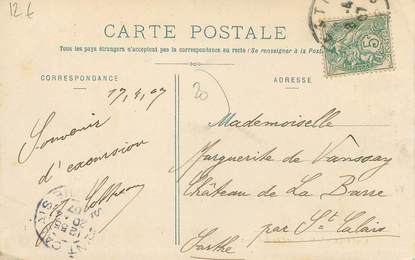 12 €
CARTE POSTALE
Tous les pays étrangers n'acceptent pas la correspondance au recto (Se renseigner à la Poste)
CORRESPONDANCE
ADRESSE
17,4,07
20
Souvenir
d'excursion
Mademoiselle
Marguerite de Vanssay
Château de La Barre
par St Calais
Sarthe
5